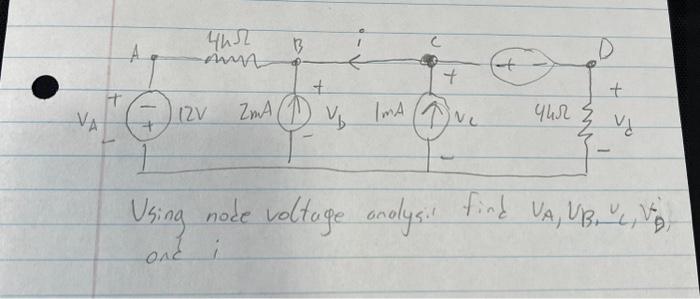 4kΩ
A B i C D
+ - +
VA + - 12V 2mA + Vb - 1mA + Vc - 4kΩ + Vd -
Using node voltage analysis find VA, VB, VC, VD,
and i